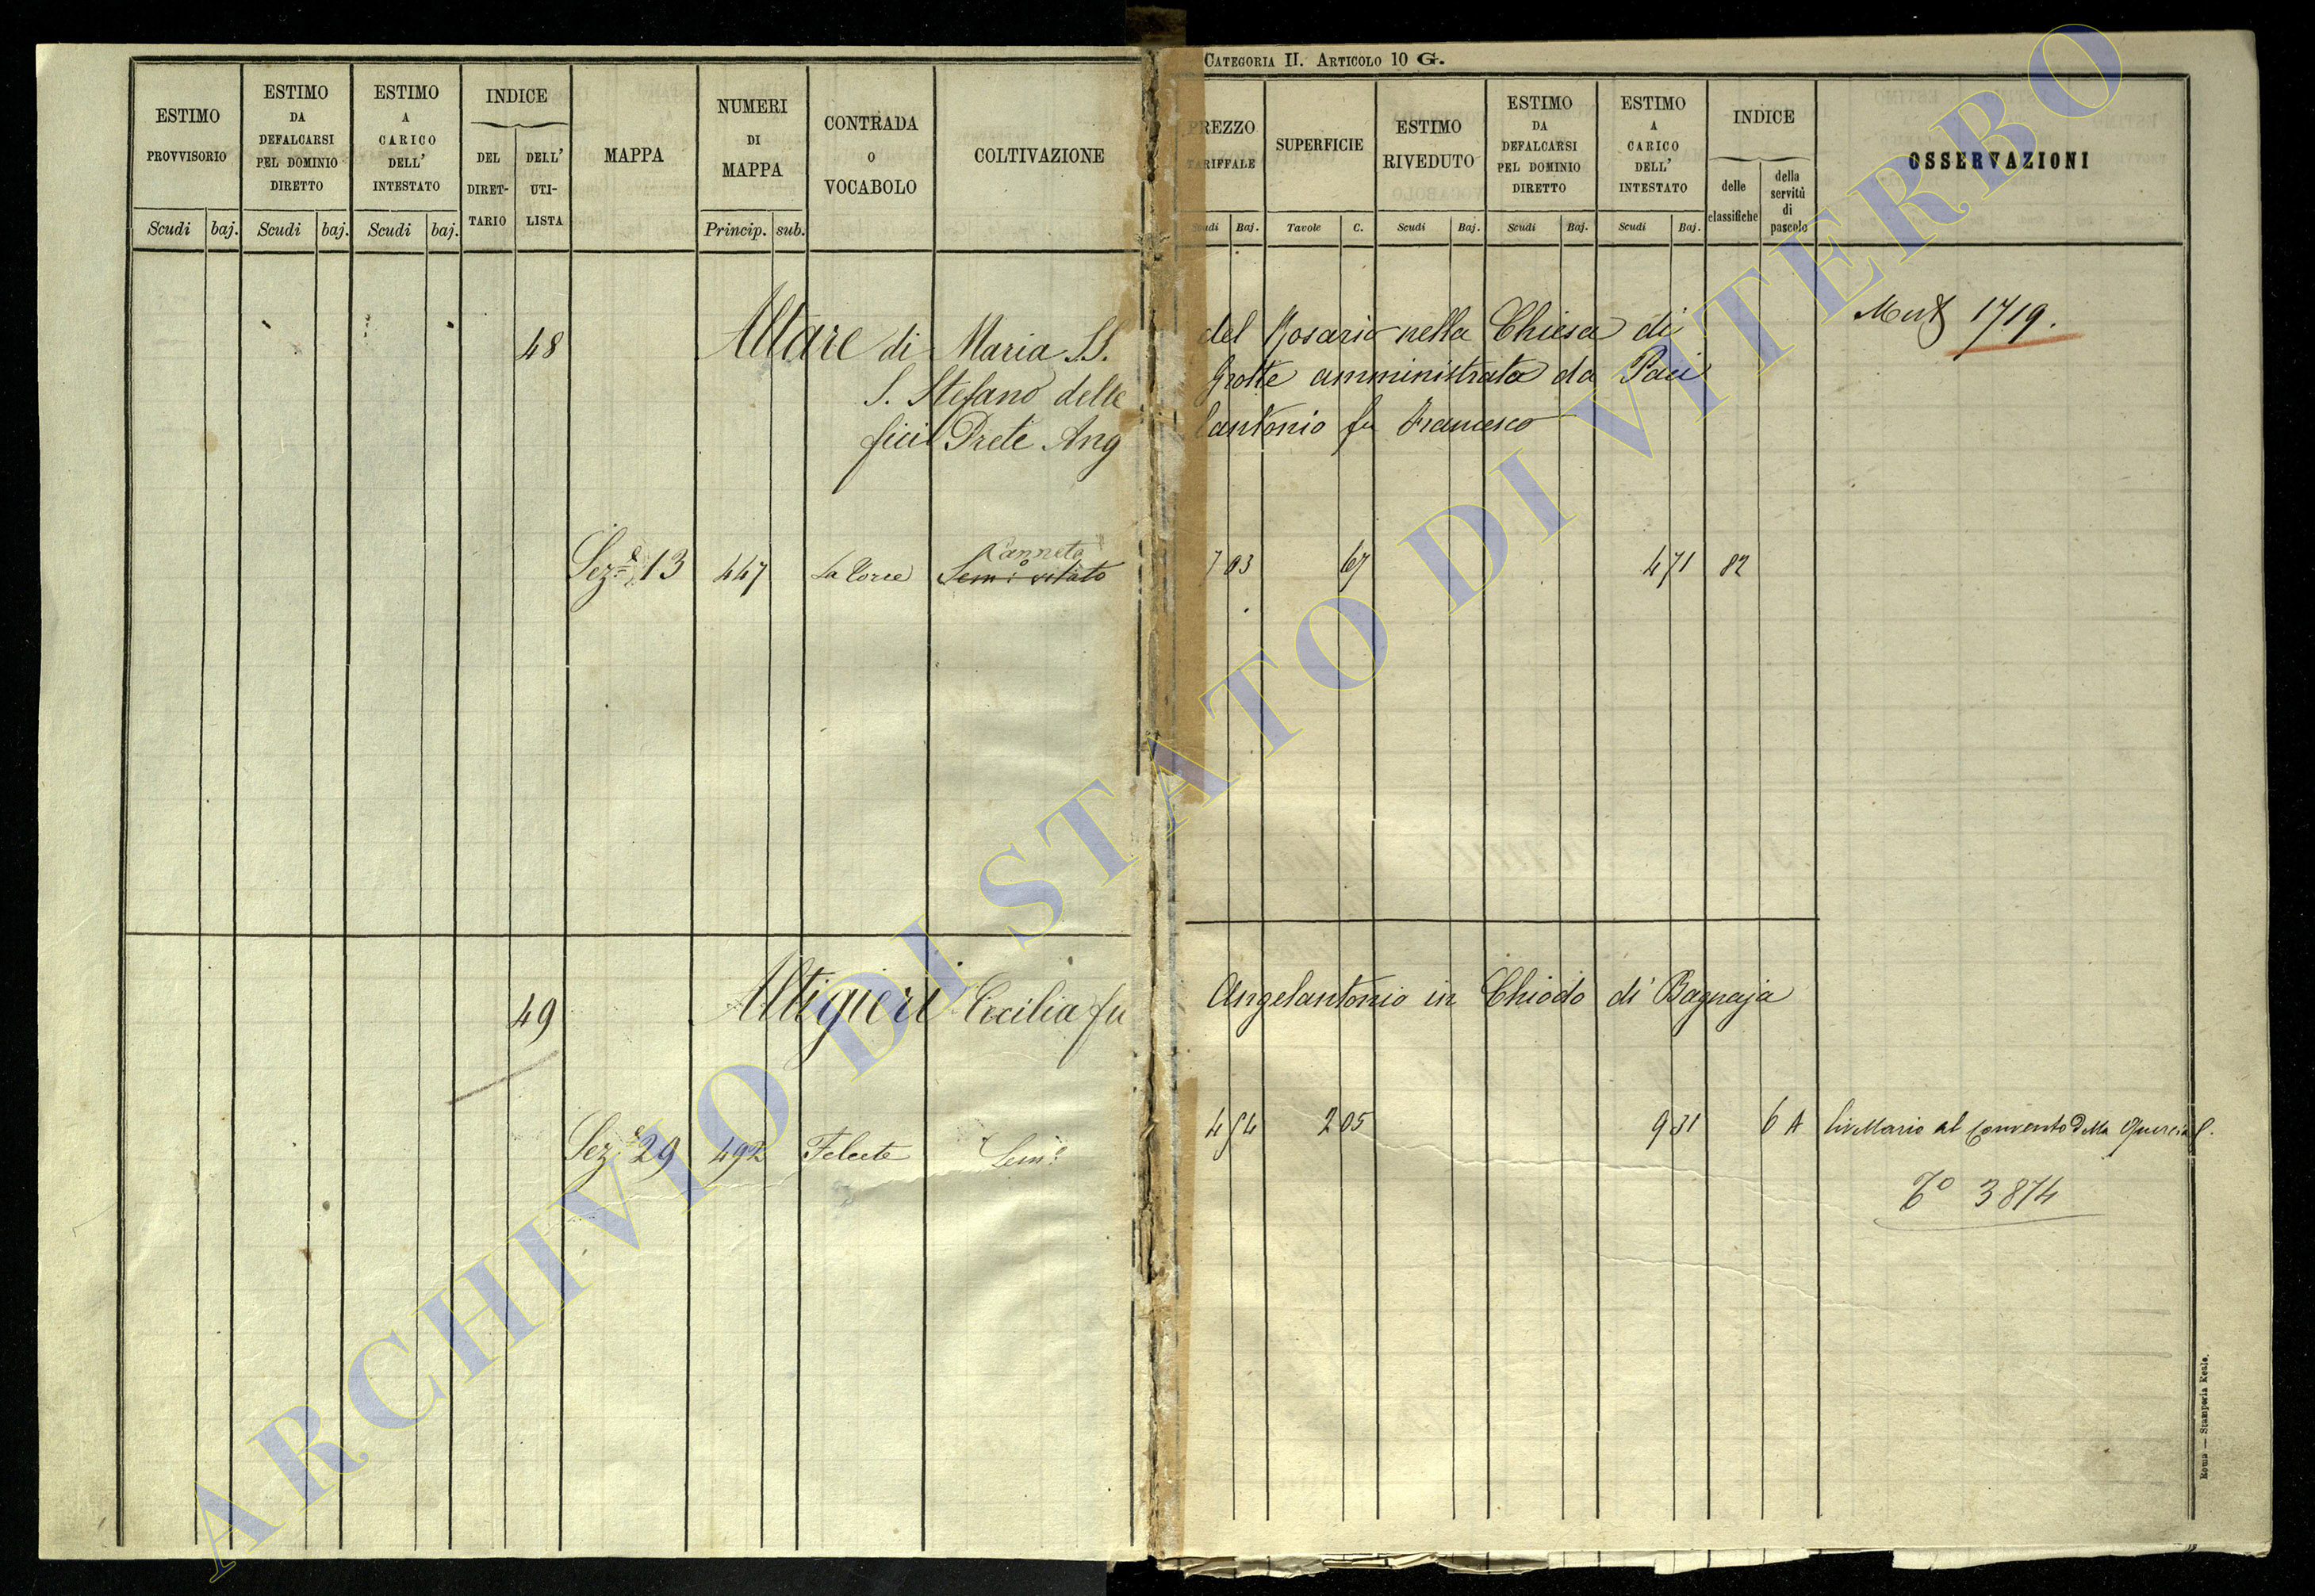 CATEGORIA II. ARTICOLO 10 G.
ESTIMO PROVVISORIO
ESTIMO DA DEFALCARSI PEL DOMINIO DIRETTO
ESTIMO A CARICO DELL' INTESTATO
INDICE
DEL DIRET-TARIO
DELL' UTI-LISTA
MAPPA
NUMERI DI MAPPA
CONTRADA O VOCABOLO
COLTIVAZIONE
PREZZO TARIFFALE
SUPERFICIE
ESTIMO RIVEDUTO
ESTIMO DA DEFALCARSI PEL DOMINIO DIRETTO
ESTIMO A CARICO DELL' INTESTATO
INDICE
delle classifiche
della servitù di pascolo
OSSERVAZIONI
Scudi baj. Scudi baj. Scudi baj. Princip. sub. Scudi Baj. Tavole C. Scudi Baj. Scudi Baj. Scudi Baj.
48 Altare di Maria SS. del Rosario nella Chiesa di 1719.
S. Stefano delle Grotte amministrata da Paci
fici Prete Ang lantonio fu Francesco
Canneto
Sez.e 13 447 La Torre Sem.o vitato 7 03 67 4 71 82
49 Altigieri Cecilia fu Angelantonio in Chiodo di Bagnaja
Sez.e 29 492 Felcete Sem.o 4 54 2 05 9 31 6 A livellario al Convento della Quercia
To 3874
Roma — Stamperia Reale.
ARCHIVIO DI STATO DI VITERBO